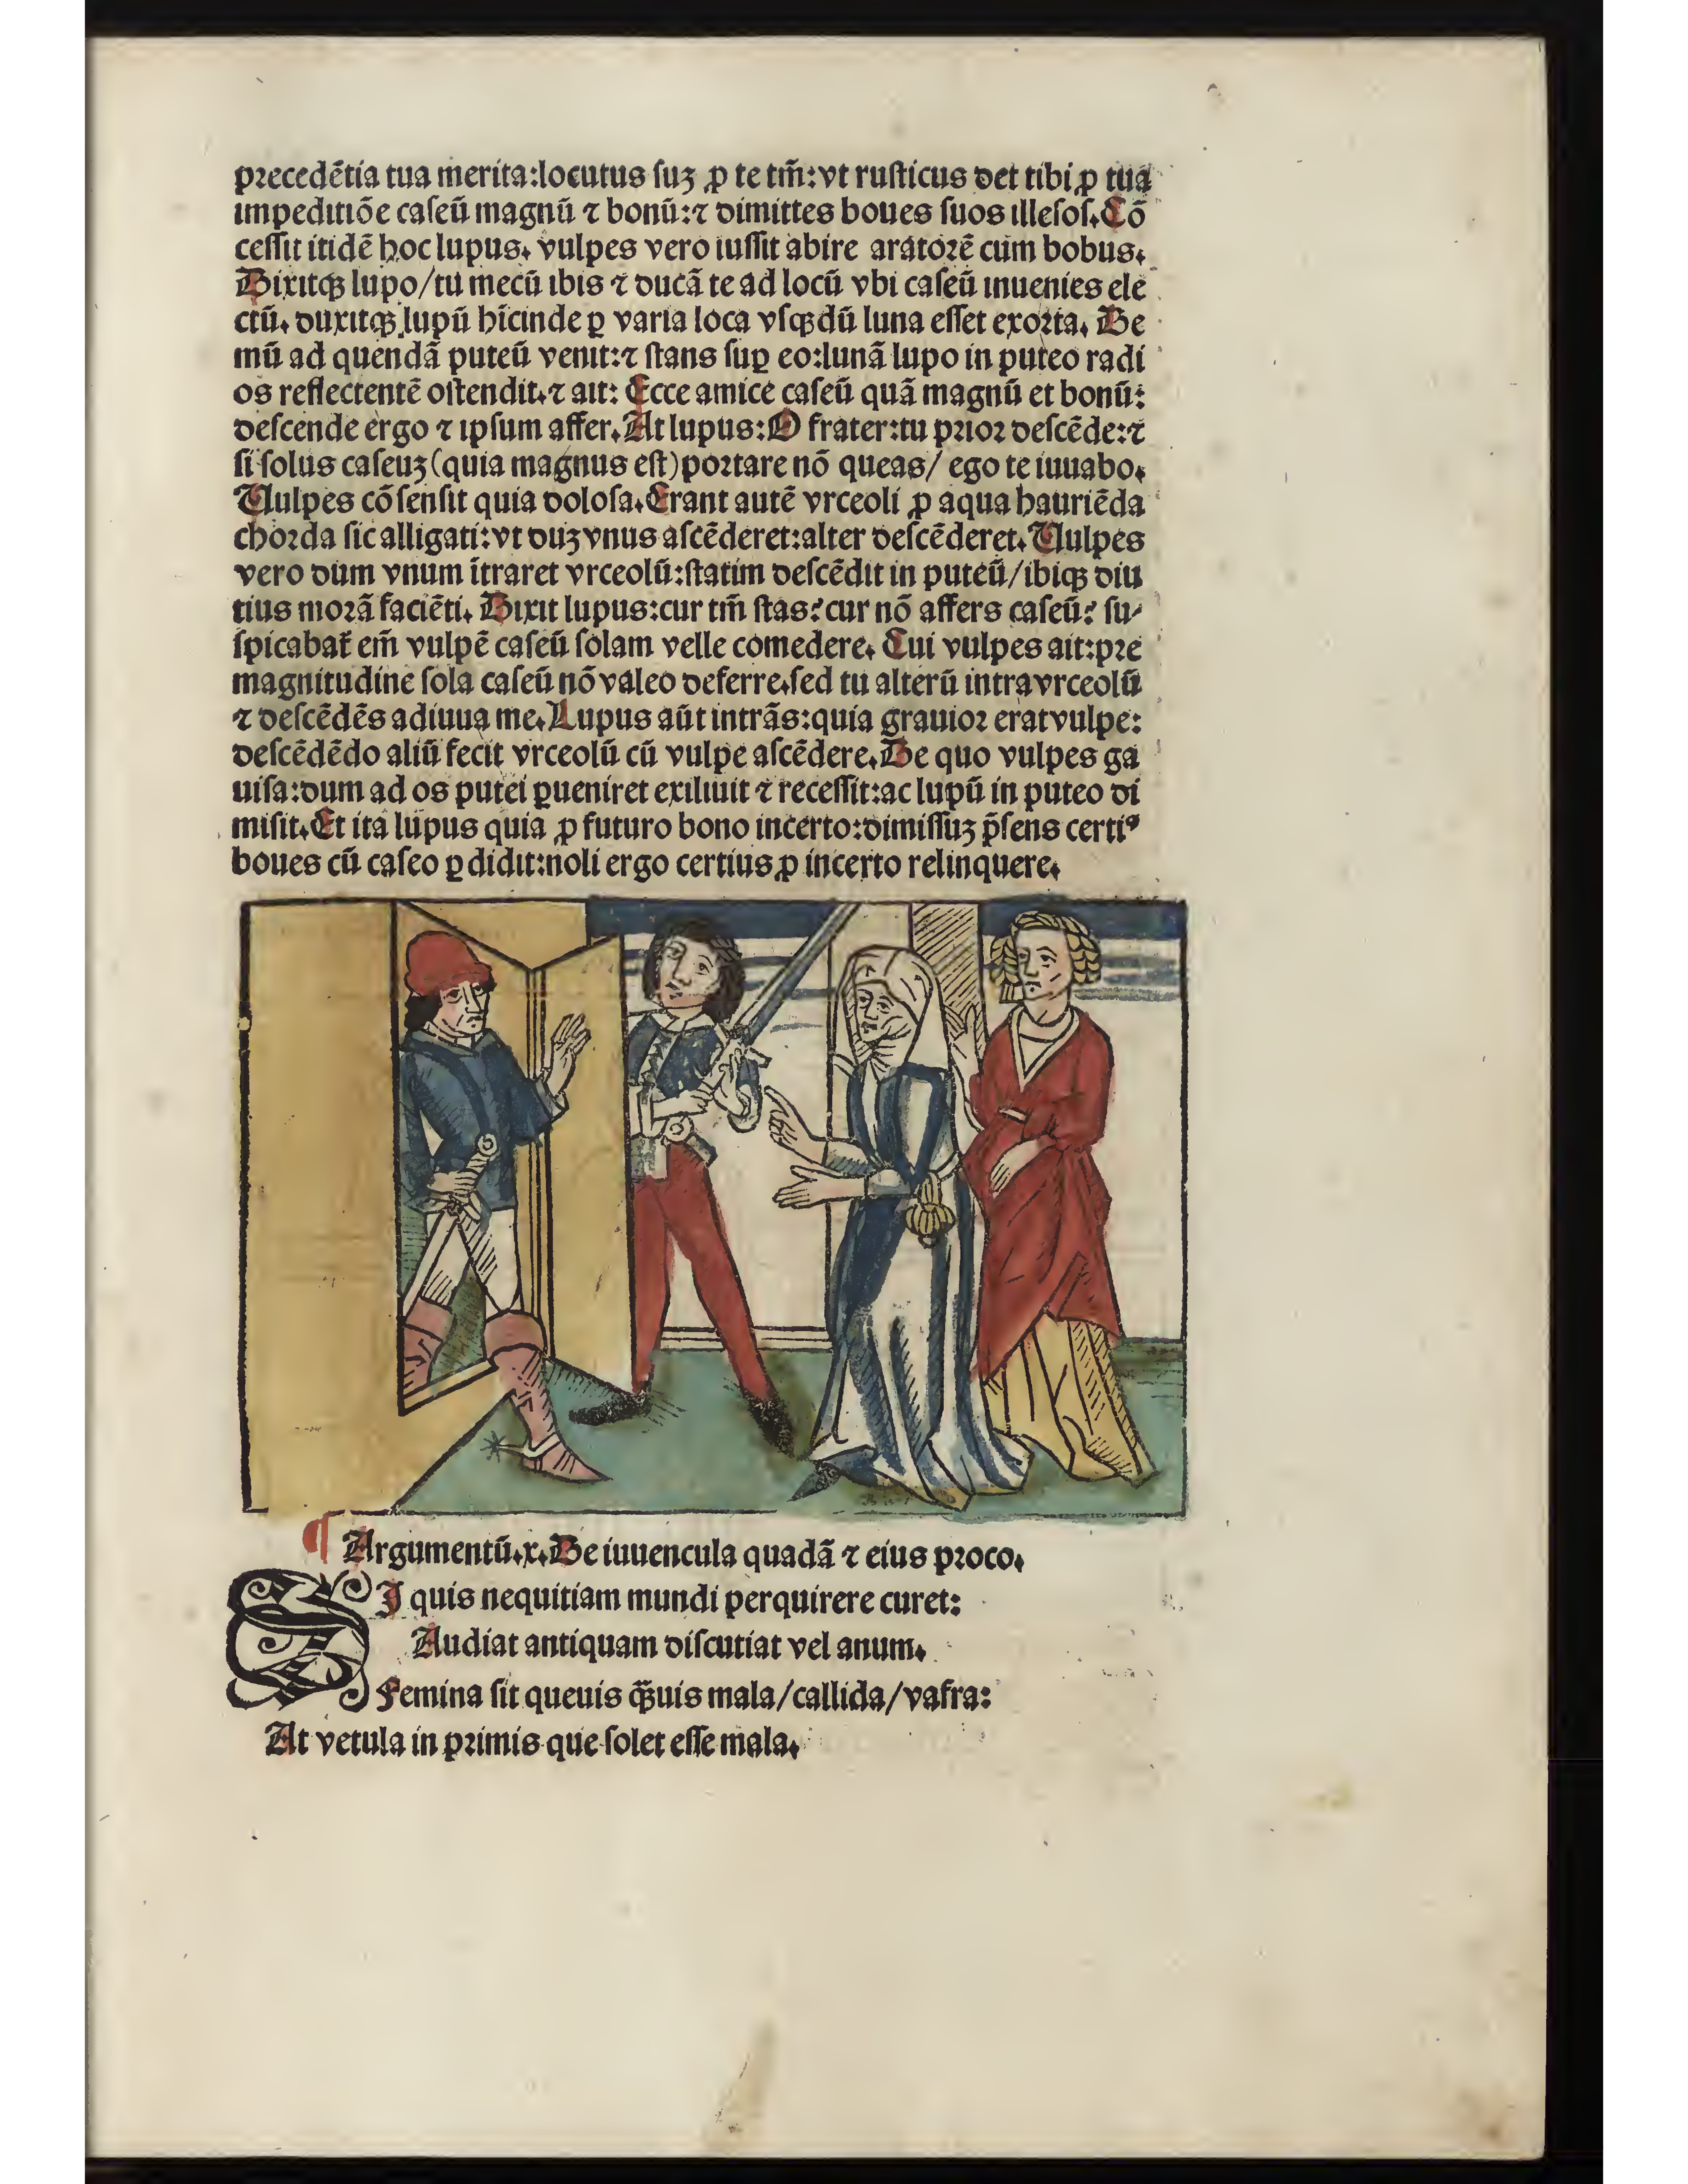 precedētia tua merita:locutus ſuꝫ ꝓ te tm̄:vt ruſticus det tibi ꝓ tua
impeditiōe caſeū magnū ⁊ bonū:⁊ dimittes boues ſuos illeſoſ. Cō
ceſſit itidē hoc lupus. vulpes vero iuſſit abire aratorē cum bobus.
Dixitqꝫ lupo/tu mecū ibis ⁊ ducā te ad locū vbi caſeū inuenies ele
ctū. duxitqꝫ lupū hīcinde ꝑ varia loca vſqꝫ dū luna eſſet exorta. De
mū ad quendā puteū venit:⁊ ſtans ſuꝑ eo:lunā lupo in puteo radi
os reflectentē oſtendit.⁊ ait: Ecce amice caſeū quā magnū et bonū:
deſcende ergo ⁊ ipſum affer. At lupus:O frater:tu prior deſcēde:⁊
ſi ſolus caſeuꝫ (quia magnus eſt) portare nō queas/ ego te iuuabo.
Uulpes cōſenſit quia doloſa. Erant autē vrceoli ꝓ aqua hauriēda
chorda ſic alligati:vt duꝫ vnus aſcēderet:alter deſcēderet. Uulpes
vero dum vnum ītraret vrceolū:ſtatim deſcēdit in puteū/ibiqꝫ diu
tius morā faciēti. Dixit lupus:cur tm̄ ſtas? cur nō affers caſeū? ſu⸗
ſpicabat᷑ em̄ vulpē caſeū ſolam velle comedere. Cui vulpes ait:pre
magnitudine ſola caſeū nō valeo deferre.ſed tu alterū intra vrceolū
⁊ deſcēdēs adiuua me. Lupus aūt intrās:quia grauior erat vulpe:
deſcēdēdo aliū fecit vrceolū cū vulpe aſcēdere. De quo vulpes ga
uiſa:dum ad os putei ꝑueniret exiliuit ⁊ receſſit:ac lupū in puteo di
miſit. Et ita lupus quia ꝓ futuro bono incerto:dimiſſuꝫ p̄ſens certiꝰ
boues cū caſeo ꝑdidit:noli ergo certius ꝓ incerto relinquere.
¶ Argumentū.x. De iuuencula quadā ⁊ eius proco.
SI quis nequitiam mundi perquirere curet:
Audiat antiquam diſcutiat vel anum.
Femina ſit queuis qꝫ̄uis mala/callida/vafra:
At vetula in primis que ſolet eſſe mala.